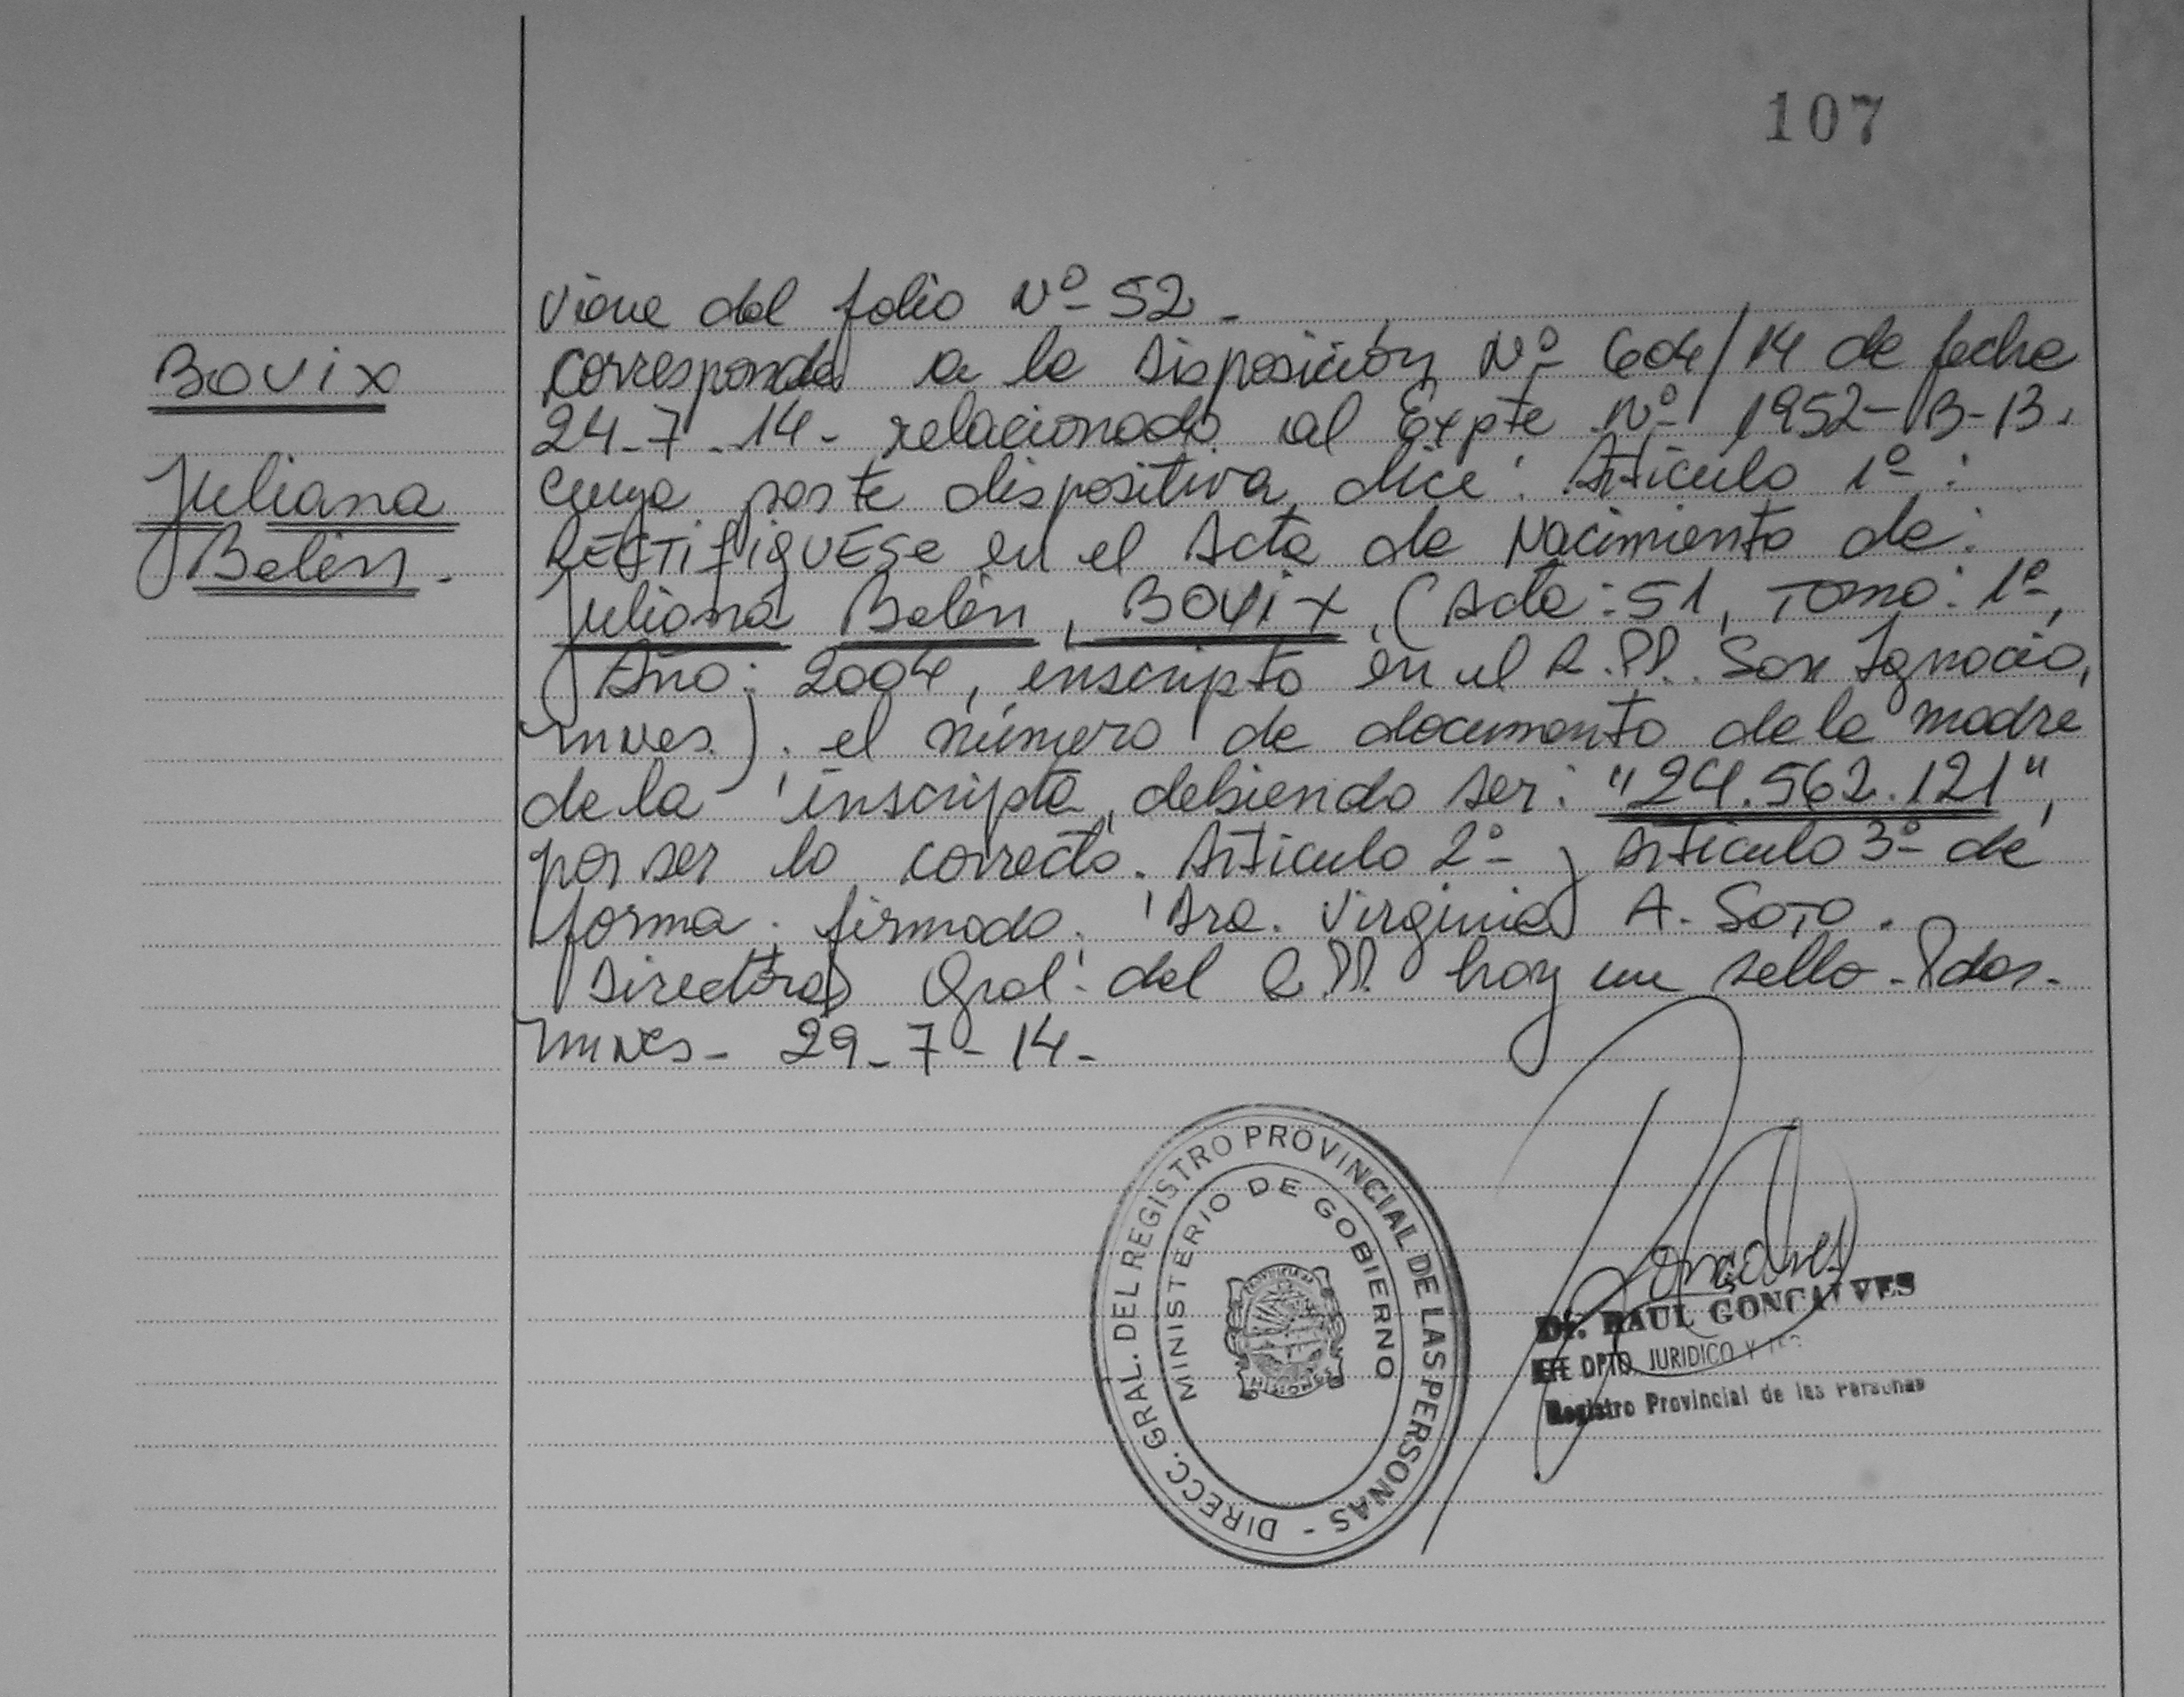 107
Viene del folio Nº 52 -
Corresponde a la Disposición Nº 604/14 de fecha
24-7-14- relacionado al Expte Nº 1952-B-13.
cuya parte dispositiva dice: Artículo 1º:
RECTIFIQUESE en el Acta de Nacimiento de:
Juliana Belén, BOVIX, (Acta: 51, Tomo: 1º,
Año: 2004, inscripto en el R.PP. San Ignacio,
mnes.). el número de documento de la madre
de la inscripta, debiendo ser: "24.562.121",
por ser lo correcto. Artículo 2º y Artículo 3º de
forma. firmado. Dra. Virginia A. Soto.
Directora Gral. del R.PP. hay un sello - Pdas.
mnes - 29-7-14-
BOVIX
Juliana
Belén.
DIRECC. GRAL. DEL REGISTRO PROVINCIAL DE LAS PERSONAS -
MINISTERIO DE GOBIERNO
PROVINCIA DE
MISIONES
Gonçalves
Dr. RAUL GONÇALVES
JEFE DPTO. JURIDICO Y
Registro Provincial de las Personas